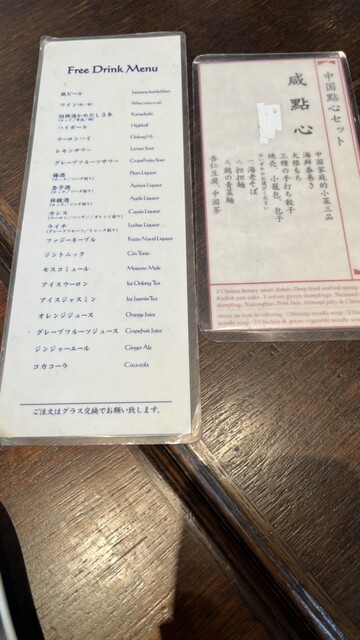 Free Drink Menu
瓶ビール Japanese bottled beer
ワイン(赤/白) Wine red or white
紹興酒かめだし3年 Kamedashi
ハイボール Highball
ウーロンハイ Oolong Hi
レモンサワー Lemon Sour
グレープフルーツサワー Grapefruits Sour
梅酒 Plum Liqueur
(ロック/ソーダ割り)
杏子酒 Apricot Liqueur
(ロック/ソーダ割り)
林檎酒 Apple Liqueur
(ロック/ソーダ割り)
カシス Cassis Liqueur
ライチ Lychee Liqueur
ファジーネーブル Fuzzy Navel Liqueur
ジントニック Gin Tonic
モスコミュール Moscow Mule
アイスウーロン Ice Oolong Tea
アイスジャスミン Ice Jasmin Tea
オレンジジュース Orange Juice
グレープフルーツジュース Grapefruit Juice
ジンジャーエール Ginger Ale
コカコーラ Coca-cola
ご注文はグラス交換でお願い致します。
中国點心セット
咸點心
中国家庭的小菜三品
海鮮春巻き
大根もち
三種の手打ち餃子
焼売、小籠包、包子
海老そば
担担麺
鶏の青菜麺
杏仁豆腐、中国茶